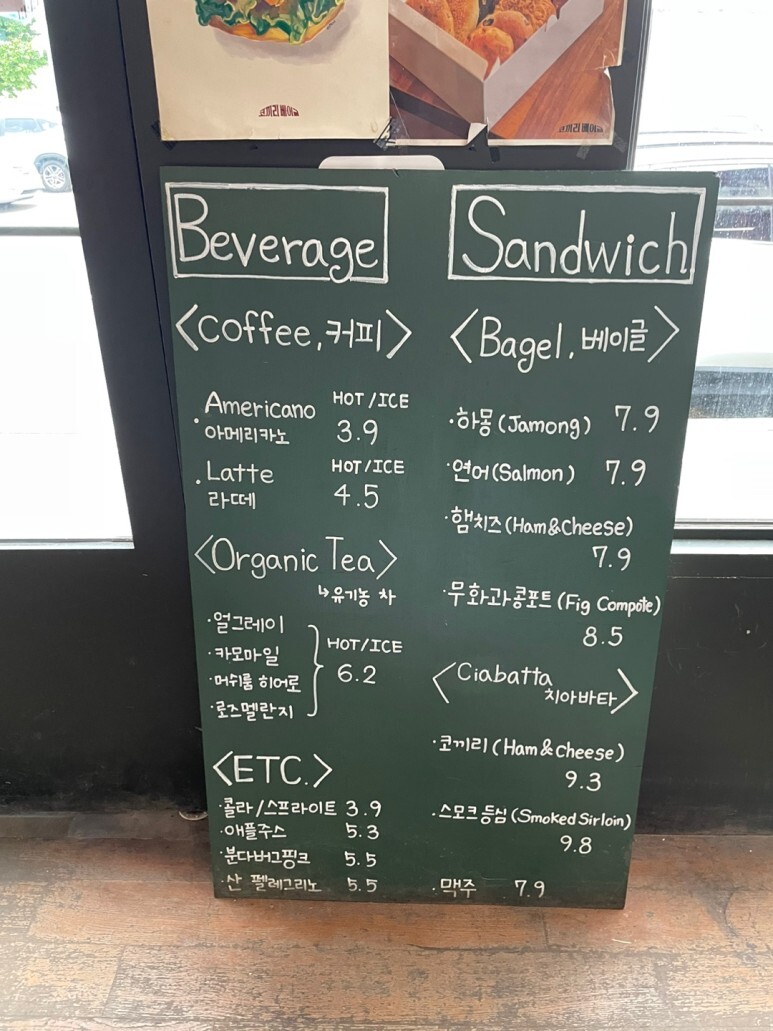 코끼리베이글
코끼리베이글
Beverage
<Coffee, 커피>
Americano HOT/ICE
아메리카노 3.9
Latte HOT/ICE
라떼 4.5
<Organic Tea>
↳유기농 차
·얼그레이
·카모마일
·머쉬룸 히어로
·로즈멜란지
HOT/ICE
6.2
<ETC.>
·콜라/스프라이트 3.9
·애플주스 5.3
·분다버그핑크 5.5
·산 펠레그리노 5.5
Sandwich
<Bagel, 베이글>
·하몽(Jamong) 7.9
·연어(Salmon) 7.9
·햄치즈(Ham&Cheese)
7.9
·무화과콩포트(Fig Compote)
8.5
<Ciabatta
치아바타>
·코끼리(Ham&cheese)
9.3
·스모크등심(Smoked Sirloin)
9.8
·맥주 7.9